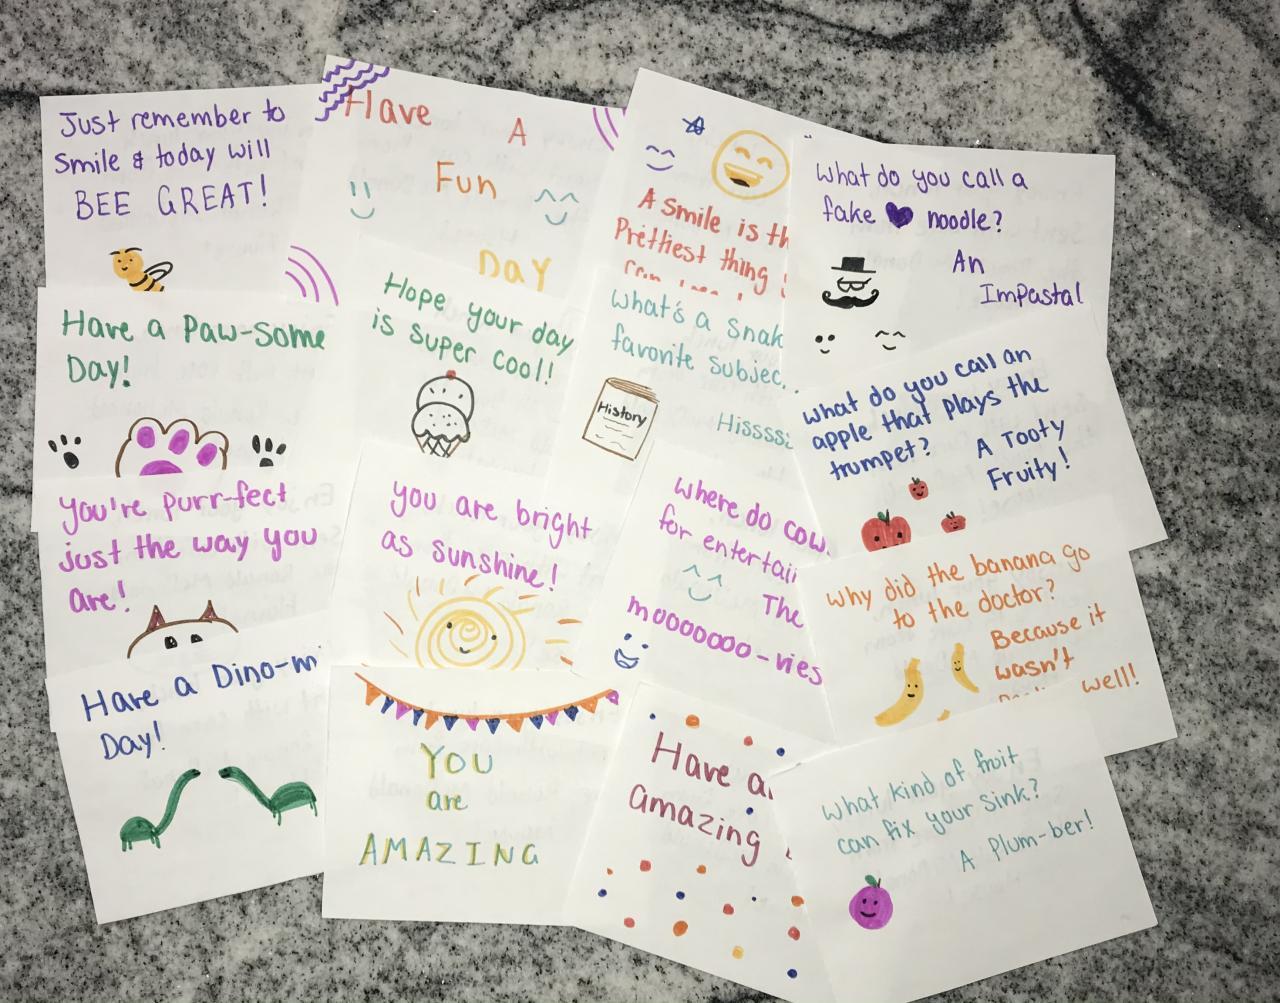 Just remember to
Smile & today will
BEE GREAT!
Have
A
Fun
Day
A Smile is th
Prettiest thing
What do you call a
fake noodle?
An
Impasta!
Have a Paw-some
Day!
Hope your day
is super cool!
What's a Snak
favorite Subjec
History
Hissss
What do you call an
apple that plays the
trumpet?
A Tooty
Fruity!
You're purr-fect
just the way you
are!
you are bright
as sunshine!
Where do cow
for entertai
The
mooooooo-vies
Why did the banana go
to the doctor?
Because it
wasn't
well!
Have a Dino-mi
Day!
You
are
AMAZING
Have a
amazing
What kind of fruit
can fix your sink?
A Plum-ber!